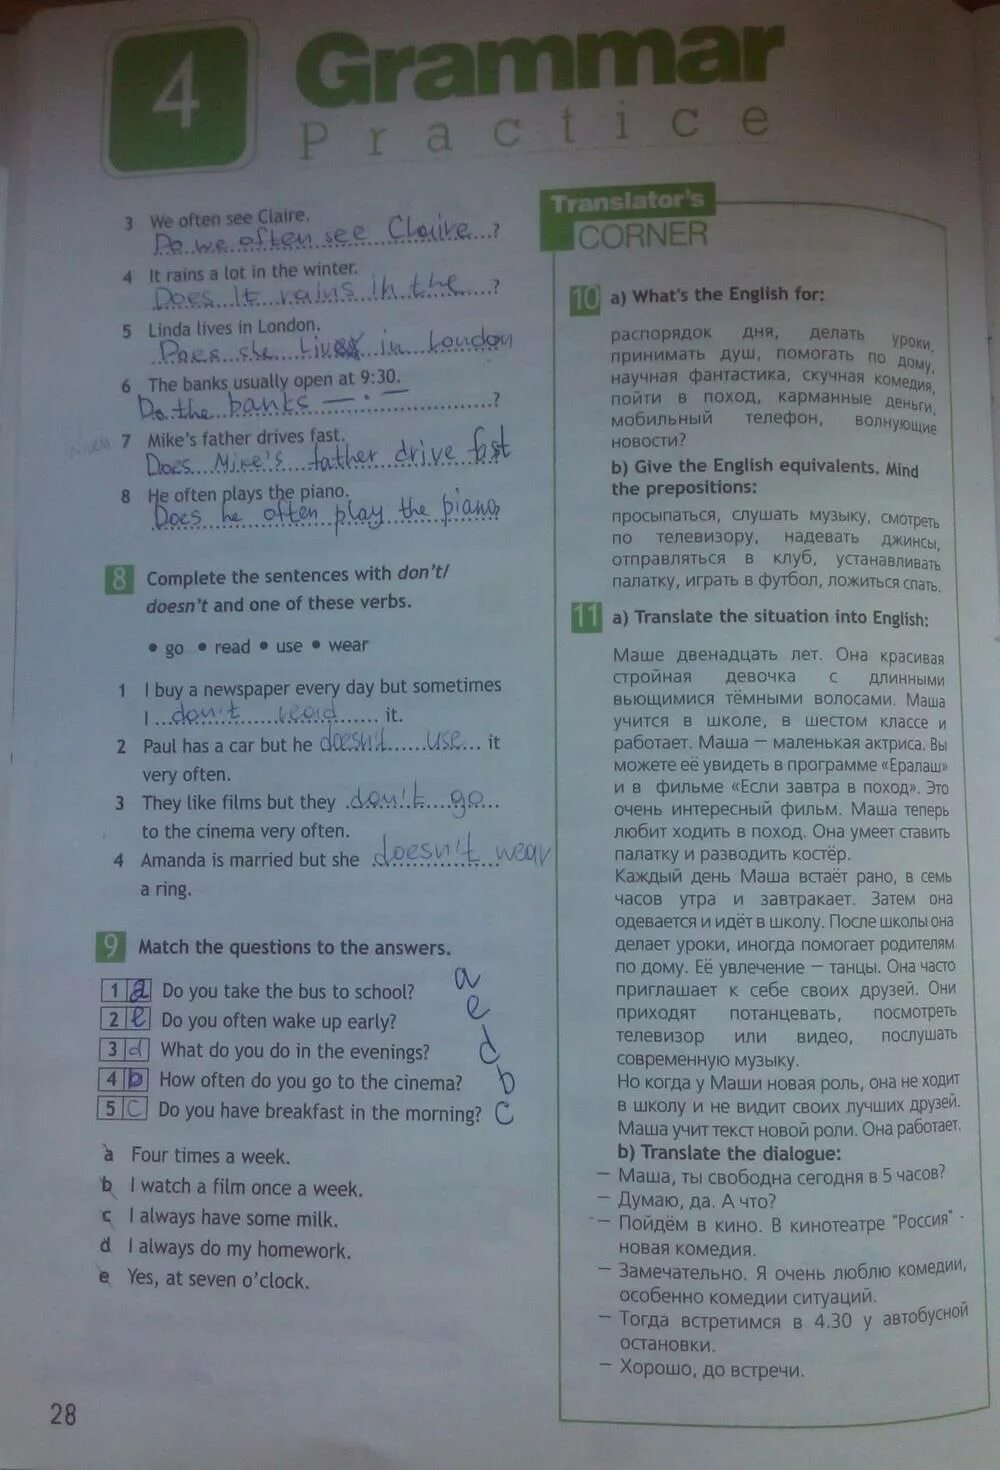 4 Grammar
Practice
3 We often see Claire.
Do we often see Claire ?
4 It rains a lot in the winter.
Does it rains in the ?
5 Linda lives in London.
Does she live in London
6 The banks usually open at 9:30.
Do the banks — . — ?
7 Mike's father drives fast.
Does Mike's father drive fast
8 He often plays the piano.
Does he often play the piano?
8 Complete the sentences with don't/
doesn't and one of these verbs.
• go • read • use • wear
1 I buy a newspaper every day but sometimes
I don't read it.
2 Paul has a car but he doesn't use it
very often.
3 They like films but they don't go
to the cinema very often.
4 Amanda is married but she doesn't wear
a ring.
9 Match the questions to the answers.
1 a Do you take the bus to school? a
2 e Do you often wake up early? e
3 d What do you do in the evenings? d
4 b How often do you go to the cinema? b
5 c Do you have breakfast in the morning? c
a Four times a week.
b I watch a film once a week.
c I always have some milk.
d I always do my homework.
e Yes, at seven o'clock.
28
Translator's
CORNER
10 a) What's the English for:
распорядок дня, делать уроки,
принимать душ, помогать по дому,
научная фантастика, скучная комедия,
пойти в поход, карманные деньги,
мобильный телефон, волнующие
новости?
b) Give the English equivalents. Mind
the prepositions:
просыпаться, слушать музыку, смотреть
по телевизору, надевать джинсы,
отправляться в клуб, устанавливать
палатку, играть в футбол, ложиться спать.
11 a) Translate the situation into English:
Маше двенадцать лет. Она красивая
стройная девочка с длинными
вьющимися тёмными волосами. Маша
учится в школе, в шестом классе и
работает. Маша — маленькая актриса. Вы
можете её увидеть в программе «Ералаш»
и в фильме «Если завтра в поход». Это
очень интересный фильм. Маша теперь
любит ходить в поход. Она умеет ставить
палатку и разводить костёр.
Каждый день Маша встаёт рано, в семь
часов утра и завтракает. Затем она
одевается и идёт в школу. После школы она
делает уроки, иногда помогает родителям
по дому. Её увлечение — танцы. Она часто
приглашает к себе своих друзей. Они
приходят потанцевать, посмотреть
телевизор или видео, послушать
современную музыку.
Но когда у Маши новая роль, она не ходит
в школу и не видит своих лучших друзей.
Маша учит текст новой роли. Она работает.
b) Translate the dialogue:
— Маша, ты свободна сегодня в 5 часов?
— Думаю, да. А что?
— Пойдём в кино. В кинотеатре "Россия" -
новая комедия.
— Замечательно. Я очень люблю комедии,
особенно комедии ситуаций.
— Тогда встретимся в 4.30 у автобусной
остановки.
— Хорошо, до встречи.